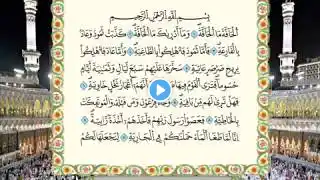 بِسْمِ اللَّهِ الرَّحْمَٰنِ الرَّحِيمِ
الْحَاقَّةُ ۝ مَا الْحَاقَّةُ ۝ وَمَا أَدْرَىٰكَ مَا الْحَاقَّةُ ۝ كَذَّبَتْ ثَمُودُ وَعَادٌ
بِالْقَارِعَةِ ۝ فَأَمَّا ثَمُودُ فَأُهْلِكُوا بِالطَّاغِيَةِ ۝ وَأَمَّا عَادٌ فَأُهْلِكُوا
بِرِيحٍ صَرْصَرٍ عَاتِيَةٍ ۝ سَخَّرَهَا عَلَيْهِمْ سَبْعَ لَيَالٍ وَثَمَٰنِيَةَ أَيَّامٍ
حُسُومًا فَتَرَى الْقَوْمَ فِيهَا كَأَنَّهُمْ أَعْجَازُ نَخْلٍ خَاوِيَةٍ ۝
فَهَلْ تَرَىٰ لَهُم مِّنۢ بَاقِيَةٍ ۝ وَجَاءَ فِرْعَوْنُ وَمَن قَبْلَهُ وَالْمُؤْتَفِكَٰتُ
بِالْخَاطِئَةِ ۝ فَعَصَوْا رَسُولَ رَبِّهِمْ فَأَخَذَهُمْ أَخْذَةً رَّابِيَةً ۝
إِنَّا لَمَّا طَغَا الْمَاءُ حَمَلْنَٰكُمْ فِي الْجَارِيَةِ ۝ لِنَجْعَلَهَا لَكُمْ